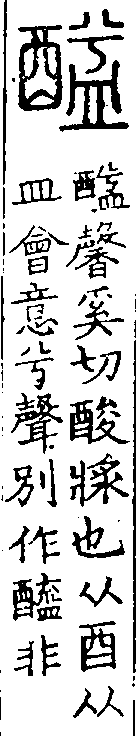 馨奚切酸漿也从酉从
皿會意兮聲別作醯非